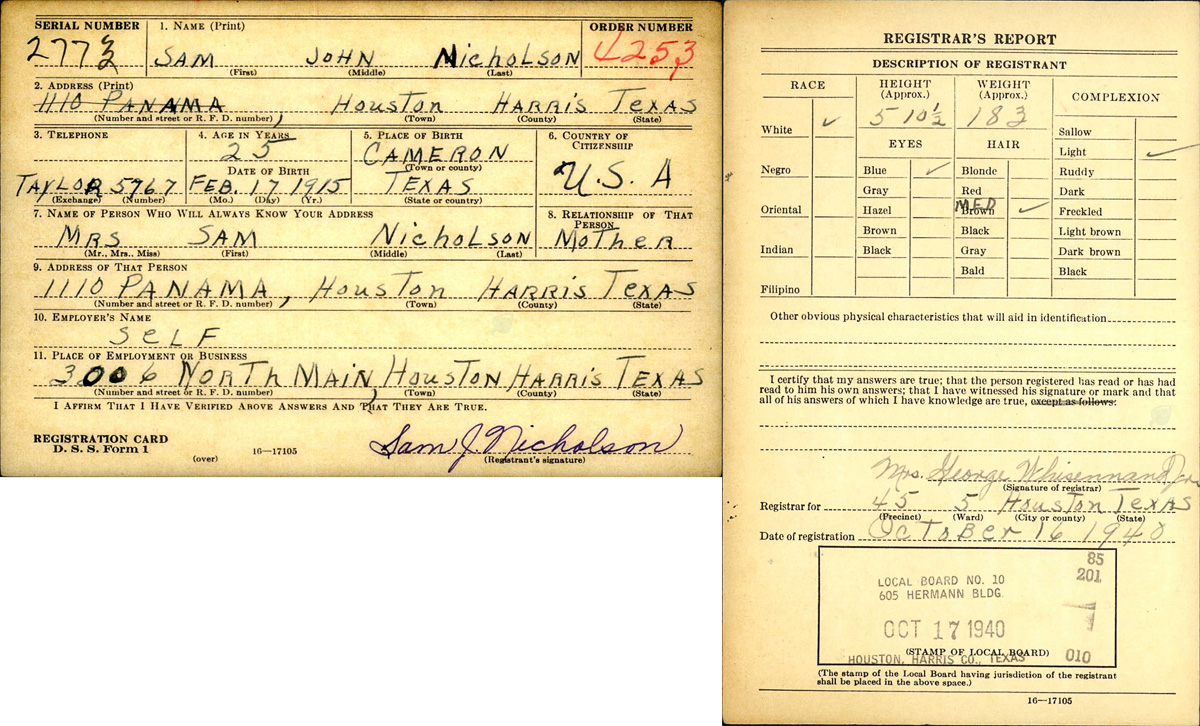 SERIAL NUMBER 1. NAME (Print) ORDER NUMBER
SAM JOHN Nicholson 4253
(First) (Middle) (Last)
2. ADDRESS (Print)
1110 PANAMA Houston HARRIS TEXAS
(Number and street or R. F. D. number) (Town) (County) (State)
3. TELEPHONE 4. AGE IN YEARS 5. PLACE OF BIRTH 6. COUNTRY OF CITIZENSHIP
25 CAMERON
DATE OF BIRTH (Town or county) U.S.A
TAYLOR 5767 FEB. 17 1915 TEXAS
(Exchange) (Number) (Mo.) (Day) (Yr.) (State or country)
7. NAME OF PERSON WHO WILL ALWAYS KNOW YOUR ADDRESS 8. RELATIONSHIP OF THAT PERSON
MRS SAM Nicholson MOTHER
(Mr., Mrs., Miss) (First) (Middle) (Last)
9. ADDRESS OF THAT PERSON
1110 PANAMA, Houston HARRIS TEXAS
(Number and street or R. F. D. number) (Town) (County) (State)
10. EMPLOYER'S NAME
SELF
11. PLACE OF EMPLOYMENT OR BUSINESS
3006 NORTH MAIN, Houston HARRIS TEXAS
(Number and street or R. F. D. number) (Town) (County) (State)
I AFFIRM THAT I HAVE VERIFIED ABOVE ANSWERS AND THAT THEY ARE TRUE.
REGISTRATION CARD
D. S. S. Form 1 (over) 16—17105 Sam J. Nicholson
(Registrant's signature)
REGISTRAR'S REPORT
DESCRIPTION OF REGISTRANT
RACE HEIGHT (Approx.) WEIGHT (Approx.) COMPLEXION
White ✓ 5 10½ 183 Sallow
EYES HAIR Light ✓
Negro Blue ✓ Blonde Ruddy
Gray Red Dark
Oriental Hazel MED Brown ✓ Freckled
Brown Black Light brown
Indian Black Gray Dark brown
Bald Black
Filipino
Other obvious physical characteristics that will aid in identification
I certify that my answers are true; that the person registered has read or has had
read to him his own answers; that I have witnessed his signature or mark and that
all of his answers of which I have knowledge are true, except as follows:
Mrs. George Whisennand
(Signature of registrar)
Registrar for 45 5 Houston Texas
(Precinct) (Ward) (City or county) (State)
Date of registration October 16 1940
85
LOCAL BOARD NO. 10 201
605 HERMANN BLDG.
OCT 17 1940
(STAMP OF LOCAL BOARD) 010
HOUSTON, HARRIS CO., TEXAS
(The stamp of the Local Board having jurisdiction of the registrant
shall be placed in the above space.)
16—17105